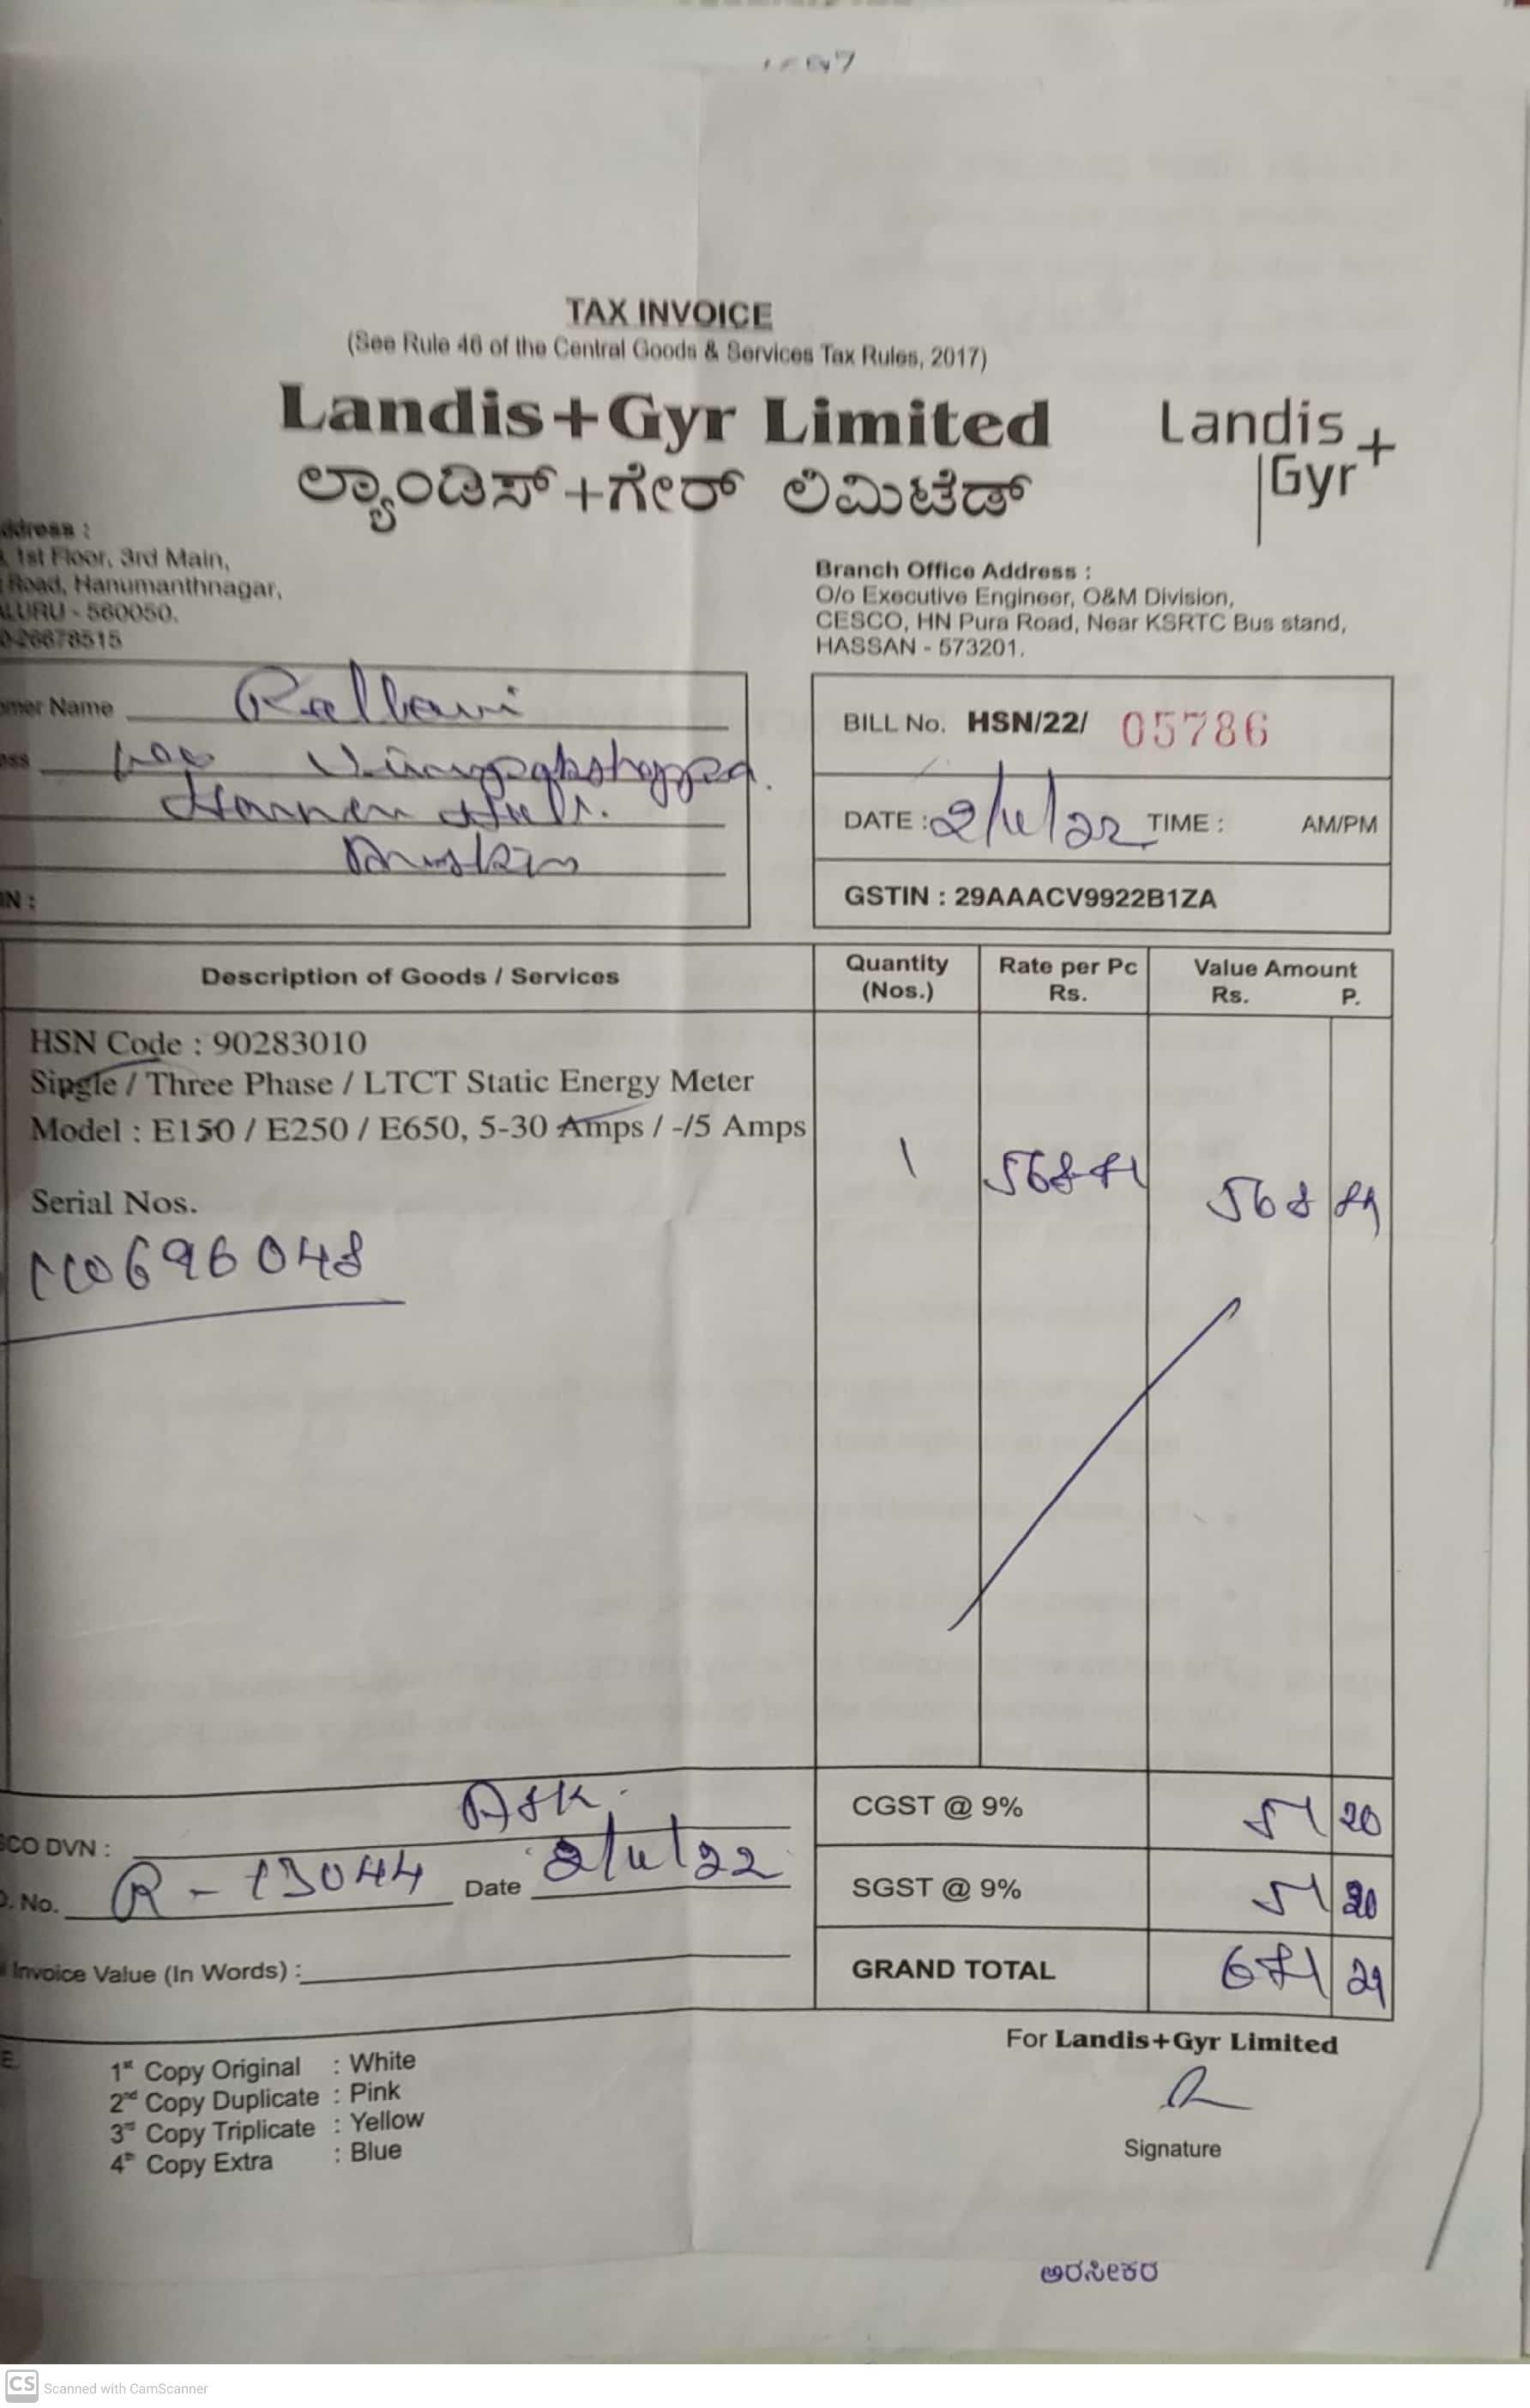 TAX INVOICE
(See Rule 46 of the Central Goods & Services Tax Rules, 2017)
Landis+Gyr Limited
Landis+
Gyr
ಲ್ಯಾಂಡಿಸ್+ಗೇರ್ ಲಿಮಿಟೆಡ್
ddress :
1st Floor, 3rd Main,
Road, Hanumanthnagar,
ALURU - 560050.
0-26678515
Branch Office Address :
O/o Executive Engineer, O&M Division,
CESCO, HN Pura Road, Near KSRTC Bus stand,
HASSAN - 573201.
omer Name
ess
IN :
BILL No. HSN/22/ 05786
DATE : TIME : AM/PM
GSTIN : 29AAACV9922B1ZA
Description of Goods / Services
Quantity (Nos.)
Rate per Pc Rs.
Value Amount Rs. P.
HSN Code : 90283010
Single / Three Phase / LTCT Static Energy Meter
Model : E150 / E250 / E650, 5-30 Amps / -/5 Amps
1
Serial Nos.
CGST @ 9% 51 20
SCO DVN : ASK
O. No. R - 13044 Date
SGST @ 9% 51 20
Invoice Value (In Words) :
GRAND TOTAL
For Landis+Gyr Limited
E.
1st Copy Original : White
2nd Copy Duplicate : Pink
3rd Copy Triplicate : Yellow
4th Copy Extra : Blue
Signature
ಅರಸೀಕರ
CS Scanned with CamScanner